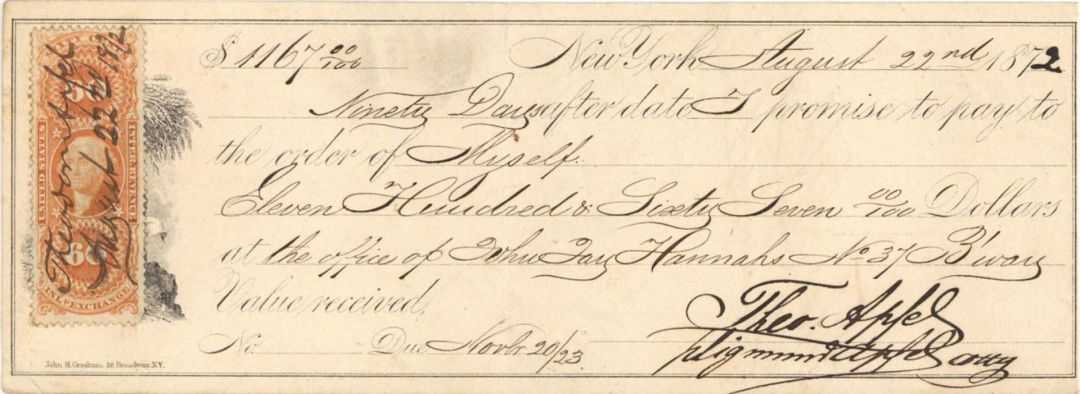 $ 1167 00/100 New York August 22nd 1872
Ninety Days after date I promise to pay to
the order of Myself.
Eleven Hundred & Sixty Seven 00/100 Dollars
at the office of John Jay Hannahs No 37 B'way
Value received,
No. Due Novbr 20/23
Theo. Apfel
Sigmund Apfel
John H. Gresham. 56 Broadway. N.Y.
60
UNITED STATES
INTER. REVENUE
60
INL. EXCHANGE
Apfel
August 22nd 1872